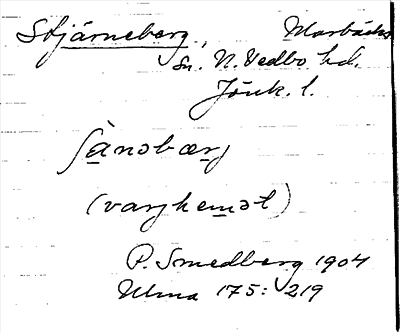 Stjärneberg, Marbäcks
sn. N. Vedbo hd.
Jönk. l.
ʃànəbærj
(varj hemət)
P. Smedberg 1904
Ulma 175: 219